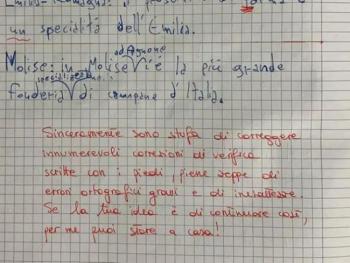 Emilia-Romagna: il
un specialità dell'Emilia.
ad Agnone
Molise: in Molise c'è la più grande
specializzata
fonderia di campane d'Italia.
Sinceramente sono stufa di correggere
innumerevoli correzioni di verifica
scritte con i piedi, piene zeppe di
errori ortografici gravi e di inesattezze.
Se la tua idea è di continuare così,
per me puoi stare a casa!